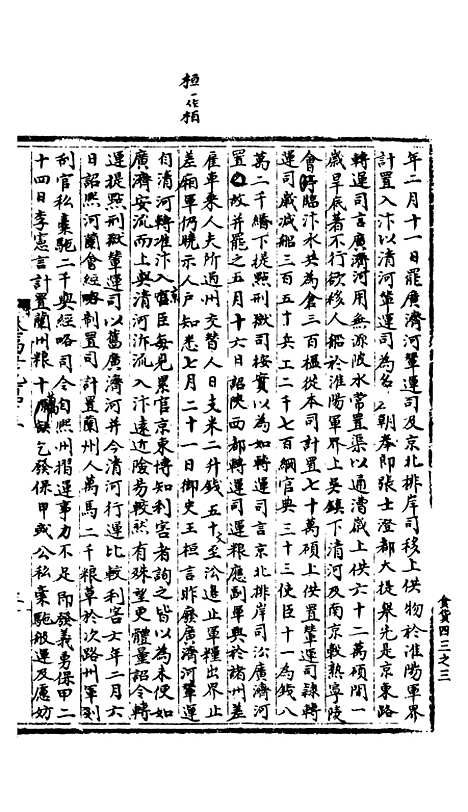 桓一作栢
年二月十一日罷廣濟河輦運司及京北排岸司移上供物於淮陽軍界
計置入汴以清河輦運司為名 朝奉郎張士澄都大提舉先是京東路
轉運司言廣濟河用無源陂水常置渠以通漕歲上供六十二萬碩間一
歲旱底著不行欲移人船於淮陽軍界上吳鎮下清河及南京穀熟寧陵
會亭臨汴水共為倉三百楹從本司計置七十萬碩上供置輦運司隸轉
運司歲減船三百五十兵工二千七百綱官典三十三使臣十一為錢八
萬二千緡下提點刑獄司按實以為如轉運司言京北排岸司沿廣濟河
置 故并罷之五月十六日詔陝西都轉運司運粮應副軍興於諸州差
雇車乘人夫所過州交替人日支米二升錢五十文至沿邊止軍糧出界止
差廂軍仍曉示人戶知悉七月二十一日御史王桓言昨廢廣濟河輦運
自清河轉淮汴入京臣每見累官京東博知利害者詢之皆以為未便如
廣濟安流而上與清河泝流入汴遠近險易較然有殊望更體量詔令轉
運提點刑獄輦運司以舊廣濟河并今清河行運比較利害士年二月六
日詔熙河蘭會經略制置司計置蘭州人萬馬二千粮草於次路州軍刬
刮官私橐駞二千與經略司令自熙州摺運事力不足即發義勇保甲二
十四日李憲言計置蘭州粮十萬 乞發保甲或公私橐駞般運及慮妨
食貨四三之三